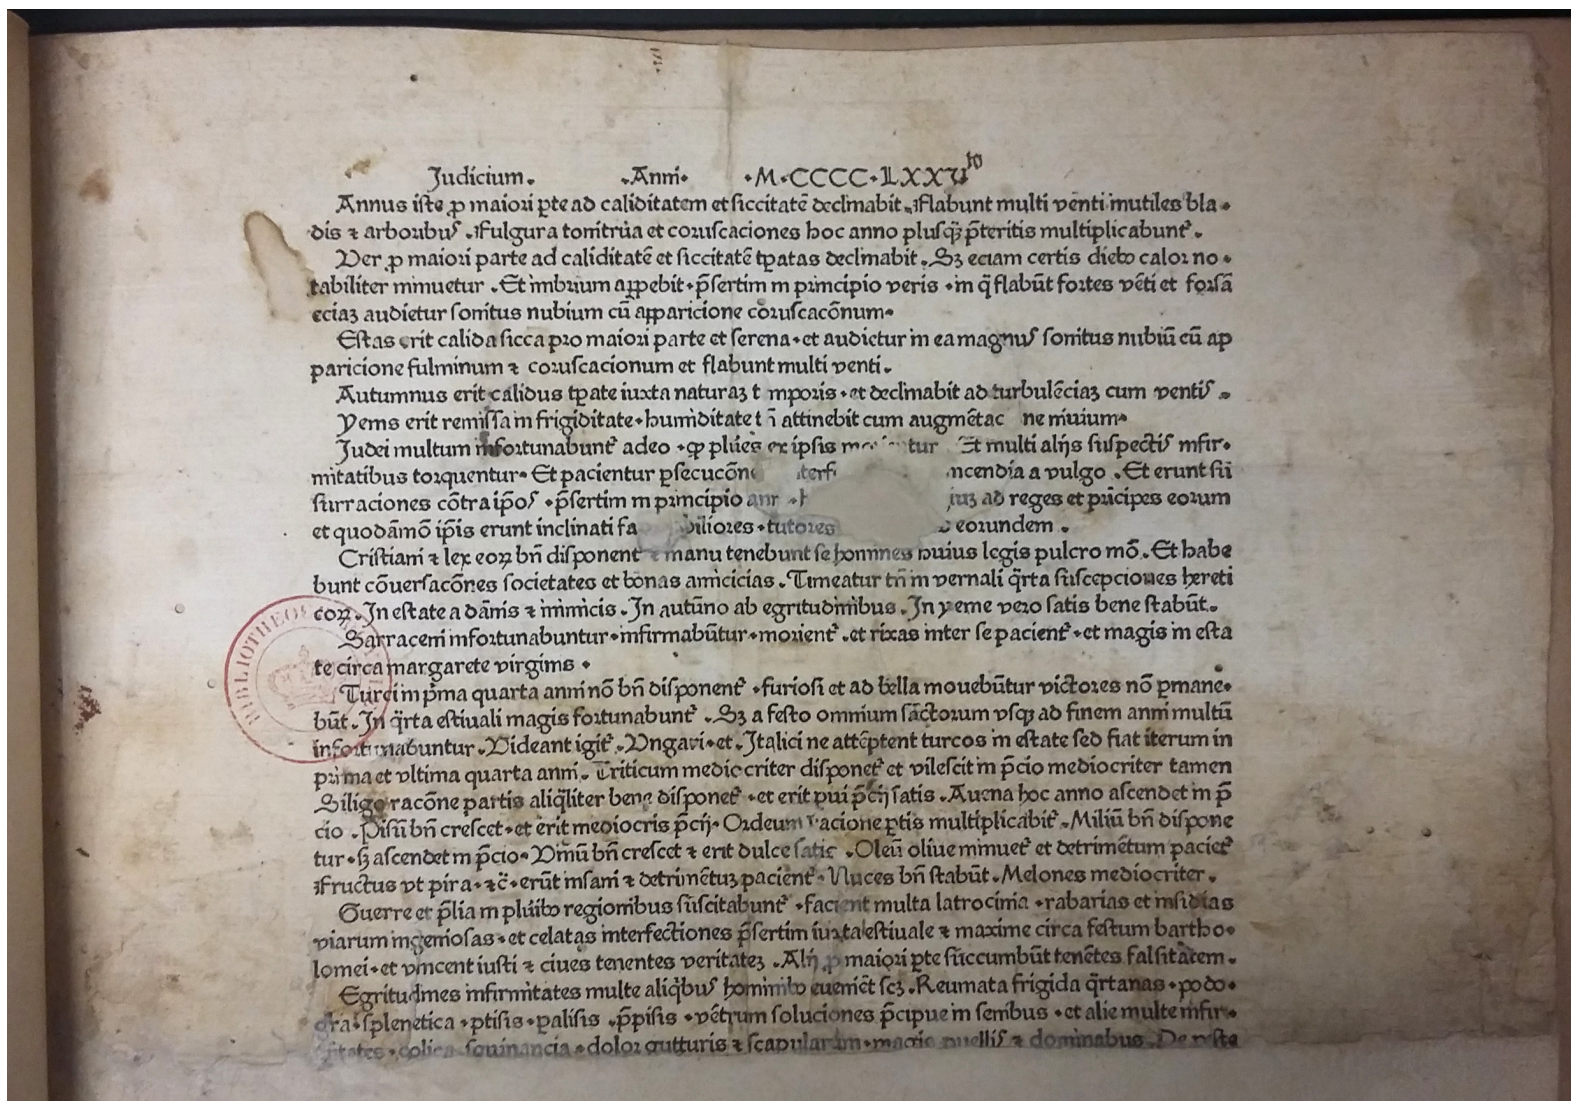 Judicium. .Anni. .M.CCCC.LXXVto
Annus iste ꝓ maiori ꝑte ad caliditatem et siccitatē declinabit. Flabunt multi venti inutiles bla-
dis ⁊ arboribus. Fulgura tonitrua et coruscaciones hoc anno plusq̄ p̄teritis multiplicabunt᷑.
Ver ꝓ maiori parte ad caliditatē et siccitatē tꝑatas declinabit. Sꝫ eciam certis diebꝰ calor no-
tabiliter minuetur. Et imbrium apꝑebit. p̄sertim in principio veris. in q̄ flabūt fortes vēti et forsā
eciaꝫ audietur sonitus nubium cū apparicione coruscacōnum.
Estas erit calida sicca pro maiori parte et serena. et audietur in ea magnus sonitus nubiū cū ap
paricione fulminum ⁊ coruscacionum et flabunt multi venti.
Autumnus erit calidus tꝑate iuxta naturaꝫ t mporis. et declinabit ad turbulēciaꝫ cum ventis.
Yems erit remissa in frigiditate. humiditate attinebit cum augmētac ne niuium.
Judei multum infortunabunt᷑ adeo. ꝙ plures ex ipsis tur Et multi alijs suspectis infir-
mitatibus torquentur. Et pacientur ꝑsecucōne terf ncendia a vulgo. Et erunt su
surraciones cōtra ip̄os. p̄sertim in principio ad reges et principes eorum
et quodāmō ip̄is erunt inclinati fa biliores. tutores eorundem.
Cristiani ⁊ lex eoꝝ bn̄ disponent᷑ ⁊ manu tenebunt se homines huius legis pulcro mō. Et habe
bunt cōuersacōnes societates et bonas amicicias. Timeatur tn̄ in vernali q̄rta suscepciones hereti
coꝝ. In estate a dānis ⁊ inimicis. In autūno ab egritudinibus. In yeme vero satis bene stabūt.
Sarraceni infortunabuntur. infirmabūtur. morient᷑. et rixas inter se pacient᷑. et magis in esta
te circa margarete virginis.
Turci in p̄ma quarta anni nō bn̄ disponent᷑. furiosi et ad bella mouebūtur victores nō ꝑmane-
būt. In q̄rta estiuali magis fortunabunt᷑. Sꝫ a festo omnium sāctorum vsqꝫ ad finem anni multū
infortunabuntur. Videant igit᷑. Vngari. et. Italici ne attēptent turcos in estate sed fiat iterum in
prima et vltima quarta anni. Triticum mediocriter disponet᷑ et vilescit in p̄cio mediocriter tamen
Siligo racōne partis aliq̄liter bene disponet᷑. et erit pui p̄cij satis. Auena hoc anno ascendet in p̄
cio. Pisū bn̄ crescet. et erit mediocris p̄cij. Ordeum racione ꝑtis multiplicabit᷑. Miliū bn̄ dispone
tur. sꝫ ascendet in p̄cio. Vinū bn̄ crescet ⁊ erit dulce satis. Oleū oliue minuet᷑ et detrimētum paciet᷑
Fructus vt pira. ⁊c̄. erūt insani ⁊ detrimētuꝫ pacient᷑. Nuces bn̄ stabūt. Melones mediocriter.
Guerre et p̄lia in pluribꝰ regionibus suscitabunt᷑. facient multa latrocinia. rabarias et insidias
viarum ingeniosas. et celatas interfectiones p̄sertim iuxta estiuale ⁊ maxime circa festum bartho-
lomei. et vincent iusti ⁊ ciues tenentes veritateꝫ. Alij ꝓ maiori ꝑte succumbūt tenētes falsitatem.
Egritudines infirmitates multe aliq̄bus hominibꝰ eueniēt scꝫ. Reumata frigida q̄rtanas. podo-
gra. splenetica. ptisis. palisis. p̄pisis. vētrum soluciones p̄cipue in senibus. et alie multe infir-
mitates. colica. dolor gutturis ⁊ scapularum. magis puellis ⁊ dominabus. De peste